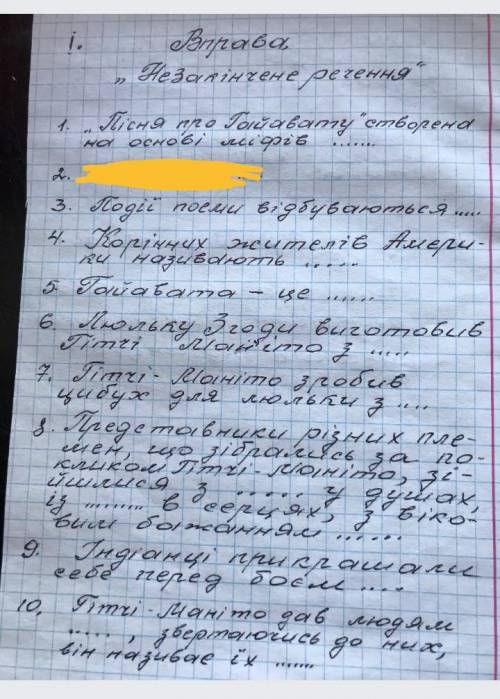 І. Вправа
„Незакінчене речення“
1. „Пісня про Гайавату“ створена
на основі міфів .......
2.
3. Події поеми відбуваються.....
4. Корінних жителів Амери-
ки називають ......
5. Гайавата – це ......
6. Люльку Згоди виготовив
Гітчі Маніто з .....
7. Гітчі-Маніто зробив
цибух для люльки з ....
8. Представники різних пле-
мен, що зібрались за по-
кликом Гітчі-Маніто, зі-
йшлися з ...... у душах,
із ......... в серцях, з віко-
вим бажанням ......
9. Індіанці прикрашали
себе перед боєм ....
10. Гітчі-Маніто дав людям
......, звертаючись до них,
він називає їх .......